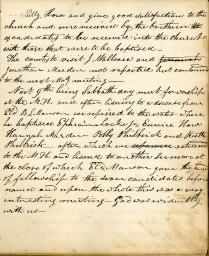 Polly Howe and gave good satisfaction to the
church and were received by the brethren the
candidates to be received into the church
with those that were to be baptised
The committe to visit J. Wallace and
Jonathan Marden not reported but continued
to the next ch. meeting
Next 9th being Sabbath day met for worship
at the M.H. and after hearing a discourse from
Eld B.S. Manson we repaired to the water where
he baptised Ephraim Locke for Eunice Howe
Hannah Marden Polly Philbrick and
Philbrick after which we returned
to the M.H. and listened to another sermon at
the close of which Eld. Manson gave the hand
of fellowship to the seven candidates before
named and upon the whole this was a very
interesting meeting God was evidently
with us